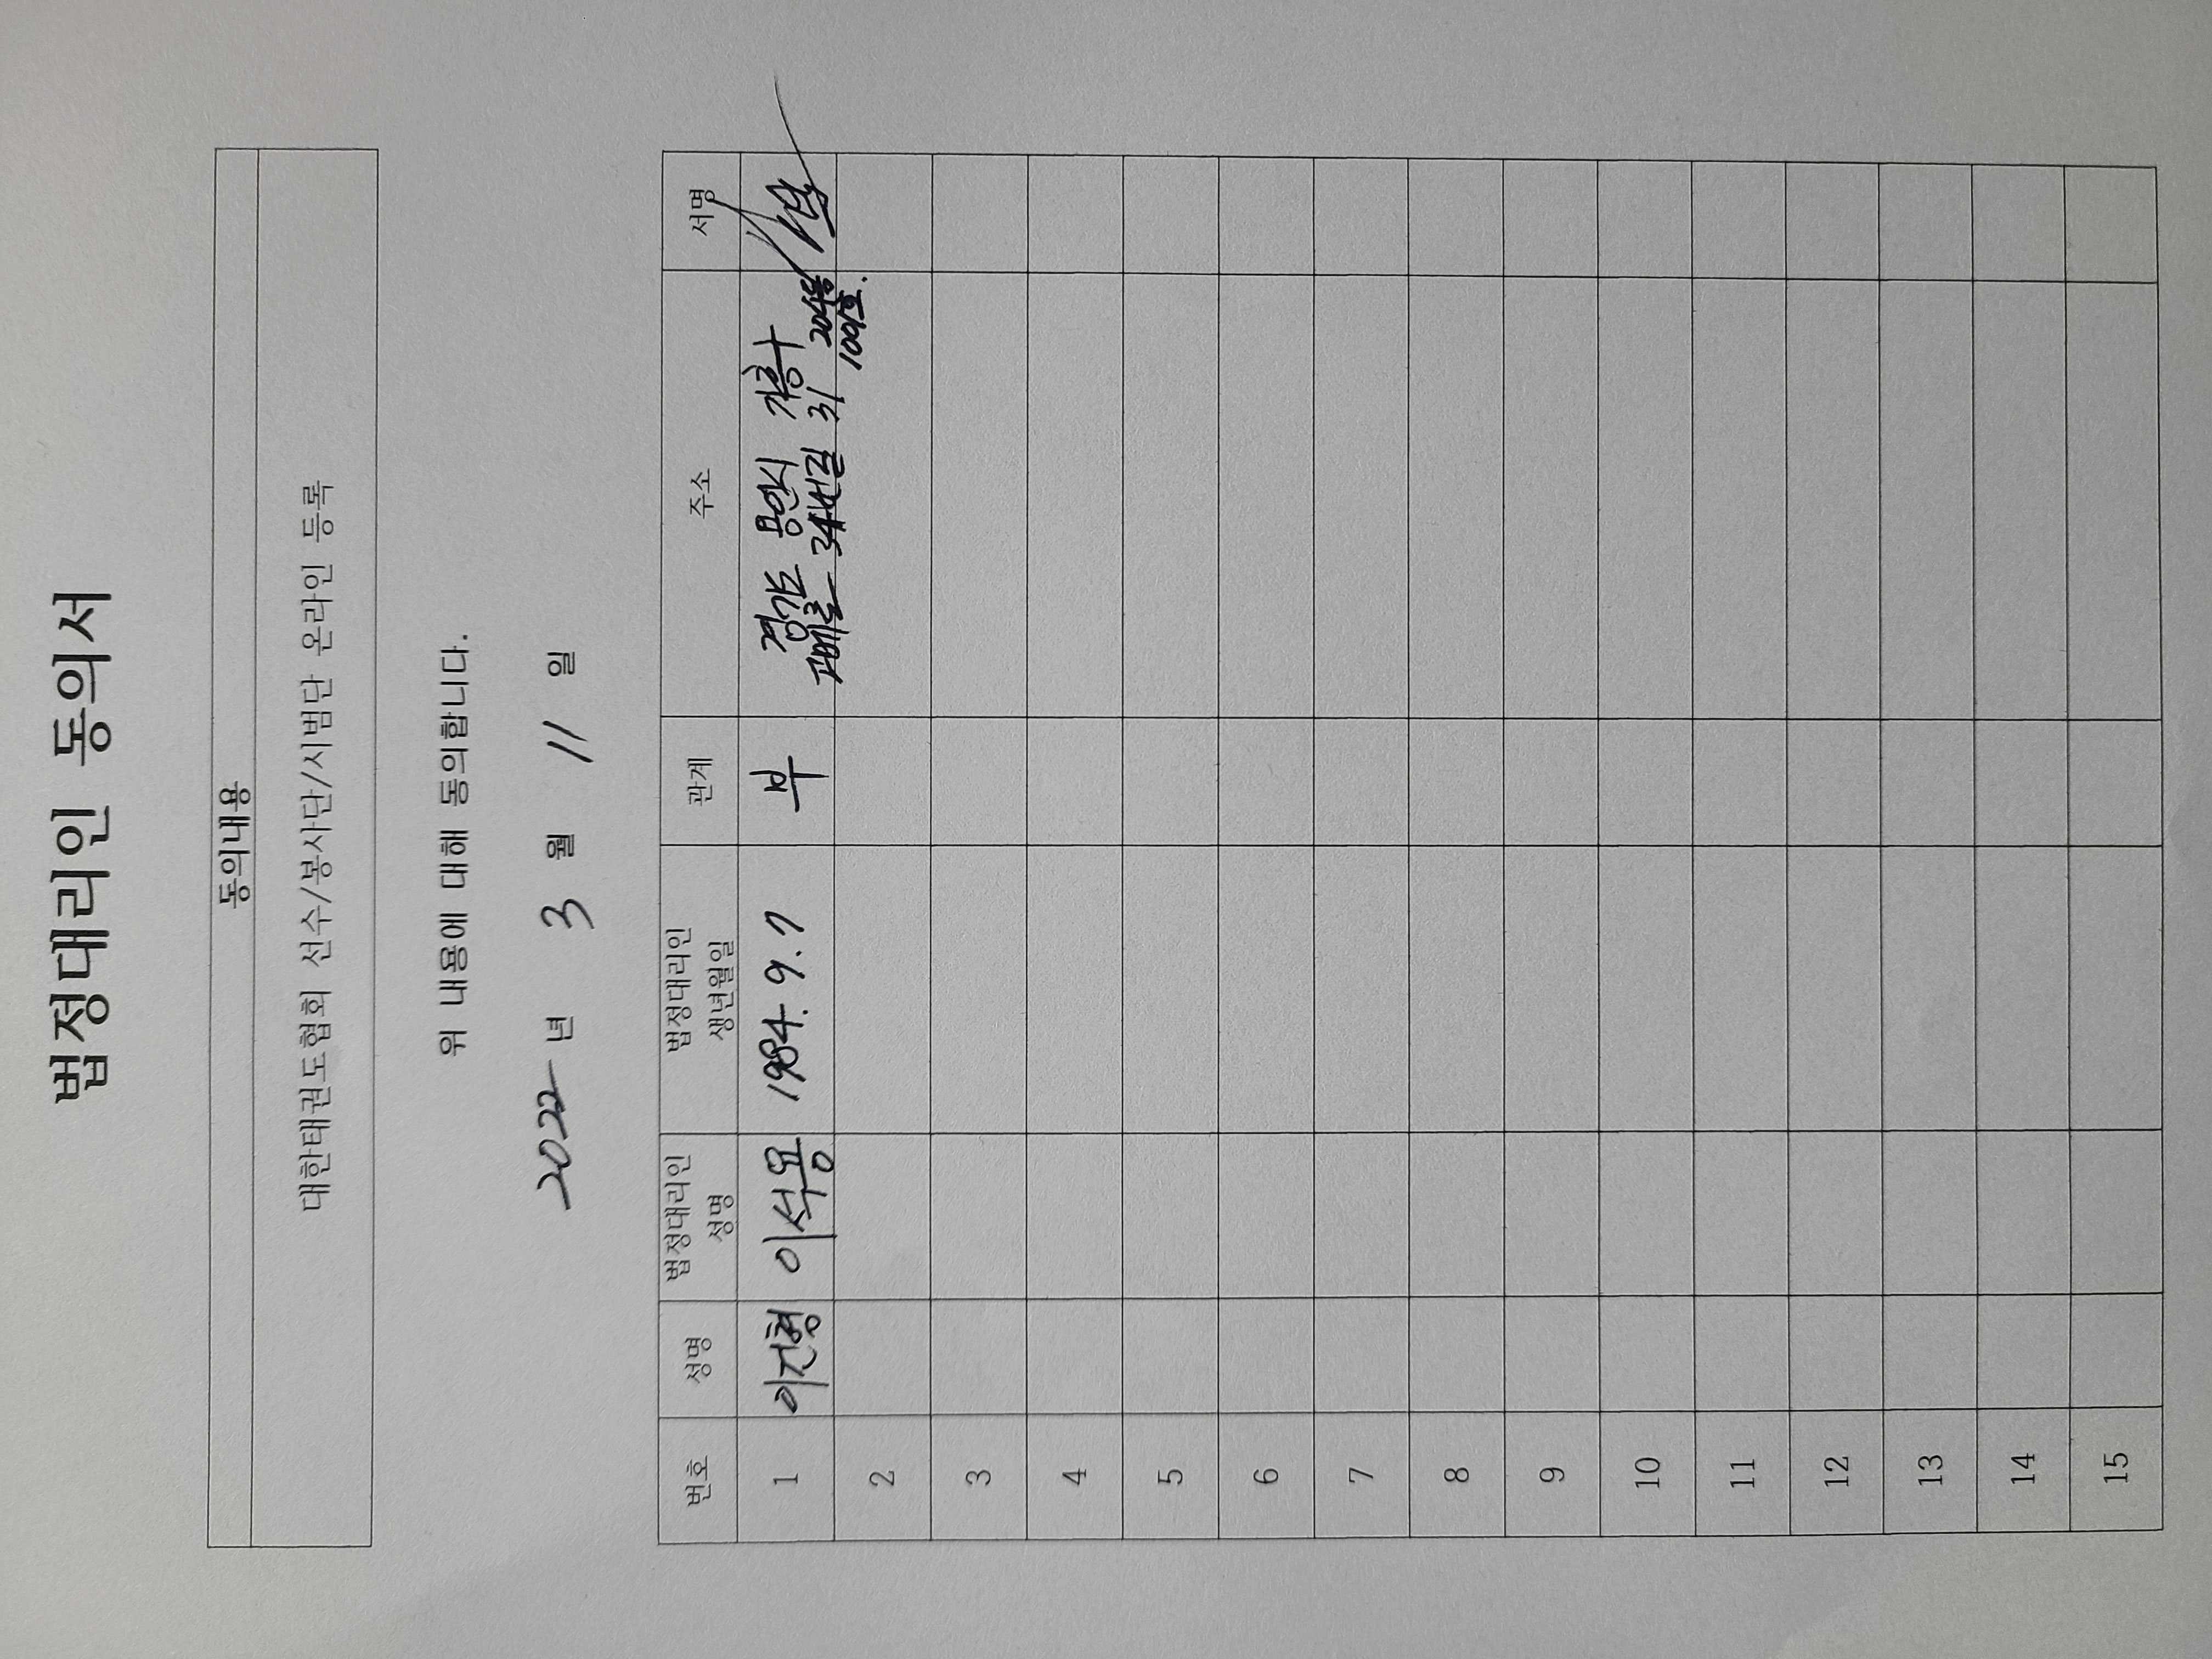 법정대리인 동의서
동의내용
대한태권도협회 선수/봉사단/시범단 온라인 등록
위 내용에 대해 동의합니다.
2022 년 3 월 11 일
번호 성명 법정대리인 성명 법정대리인 생년월일 관계 주소 서명
1 이건형 이석용 1984. 9. 7 부 경기도 용인시 기흥구
31 204동
1001호.
2
3
4
5
6
7
8
9
10
11
12
13
14
15